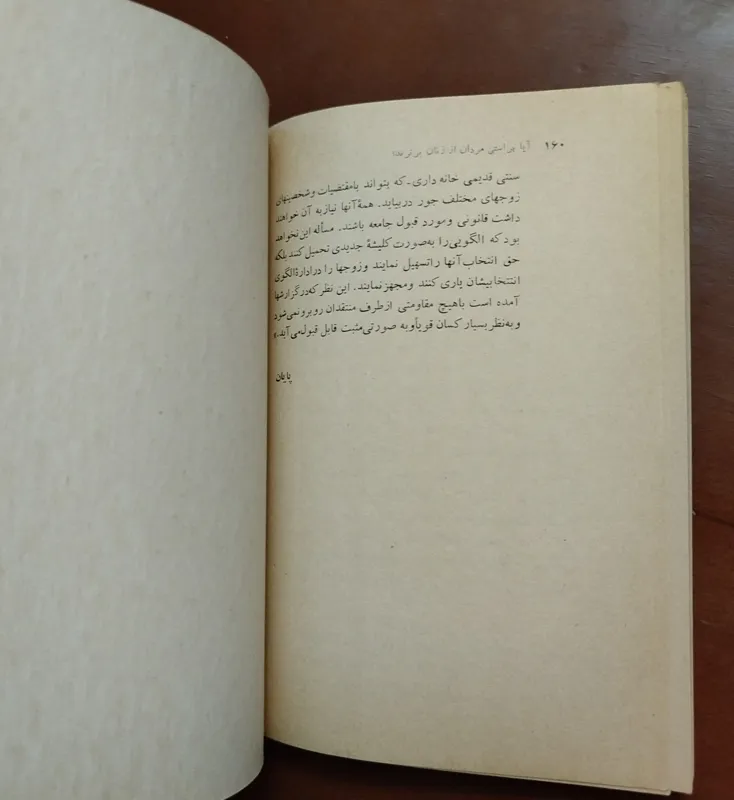 ۱۶۰ آیا براستی مردان از زنان برترند؟
سنتی قدیمی خانه داری-که بتواند بامقتضیات وشخصیتهای
زوجهای مختلف جور دربیاید. همهٔ آنها نیازبه آن خواهند
داشت قانونی ومورد قبول جامعه باشند. مسأله این نخواهد
بود که الگویی را به‌صورت کلیشهٔ جدیدی تحمیل کنند بلکه
حق انتخاب آنها راتسهیل نمایند وزوجها را درادارهٔ الگوی
انتخابیشان یاری کنند ومجهز نمایند. این نظر که در گزارشها
آمده است باهیچ مقاومتی ازطرف منتقدان روبرو نمی‌شود
و به‌نظر بسیار کسان قویأ وبه صورتی مثبت قابل قبول می‌آید.»
پایان